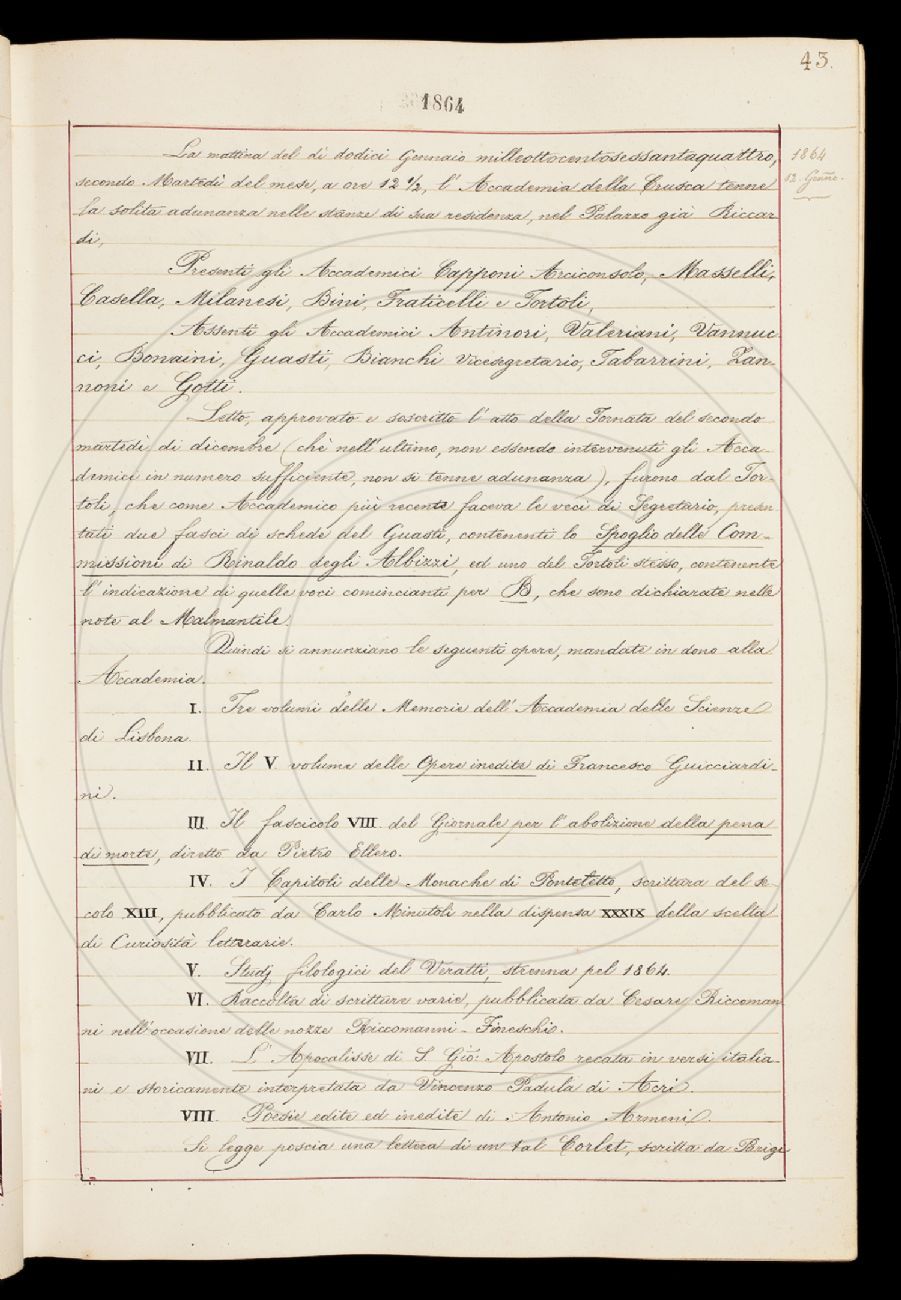 43.
1864
1864
12. Genn.e
La mattina del dì dodici Gennaio milleottocentosessantaquattro,
secondo Martedì del mese, a ore 12 1/2, l'Accademia della Crusca tenne
la solita adunanza nelle stanze di sua residenza, nel Palazzo già Riccar
di,
Presenti gli Accademici Capponi Arciconsolo, Masselli,
Casella, Milanesi, Bini, Fraticelli e Tortoli,
Assenti gli Accademici Antinori, Valeriani, Vannuc
ci, Bonaini, Guasti, Bianchi Vicesegretario, Tabarrini, Zan-
noni e Gotti.
Letto, approvato e soscritto l'atto della Tornata del secondo
martedì di dicembre (chè nell'ultimo, non essendo intervenuti gli Acca-
demici in numero sufficiente, non si tenne adunanza), furono dal Tor-
toli, che come Accademico più recente faceva le veci di Segretario, presen
tati due fasci di schede del Guasti, contenenti lo Spoglio delle Com-
missioni di Rinaldo degli Albizzi, ed uno del Tortoli stesso, contenente
l'indicazione di quelle voci comincianti per B, che sono dichiarate nelle
note al Malmantile.
Quindi si annunziano le seguenti opere, mandate in dono alla
Accademia.
I. Tre volumi delle Memorie dell'Accademia delle Scienze
di Lisbona.
II. Il V. volume delle Opere inedite di Francesco Guicciardi-
ni.
III. Il fascicolo VIII. del Giornale per l'abolizione della pena
di morte, diretto da Pietro Ellero.
IV. I Capitoli delle Monache di Pontetetto, scrittura del se-
colo XIII, pubblicato da Carlo Minutoli nella dispensa XXXIX della scelta
di Curiosità letterarie.
V. Studj filologici del Veratti, strenna pel 1864.
VI. Raccolta di scritture varie, pubblicata da Cesare Riccoman
ni nell'occasione delle nozze Riccomanni-Fineschi.
VII. L'Apocalisse di S. Gio: Apostolo recata in versi italia-
ni e storicamente interpretata da Vincenzo Padula di Acri.
VIII. Poesie edite ed inedite di Antonio Armeni.
Si legge poscia una lettera di un tal Corlet, scritta da Parigi